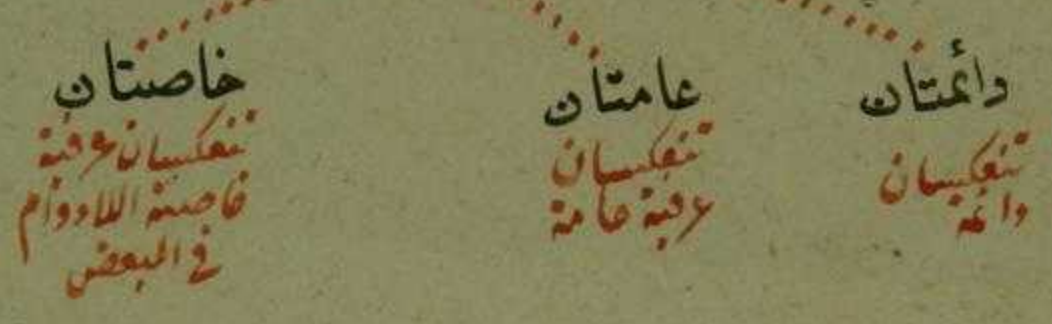 دائمتان
تنعكسان
دائمة
عامتان
تنعكسان
عرفية عامة
خاصتان
تنعكسان عرفية
خاصة اللادوام
في البعض